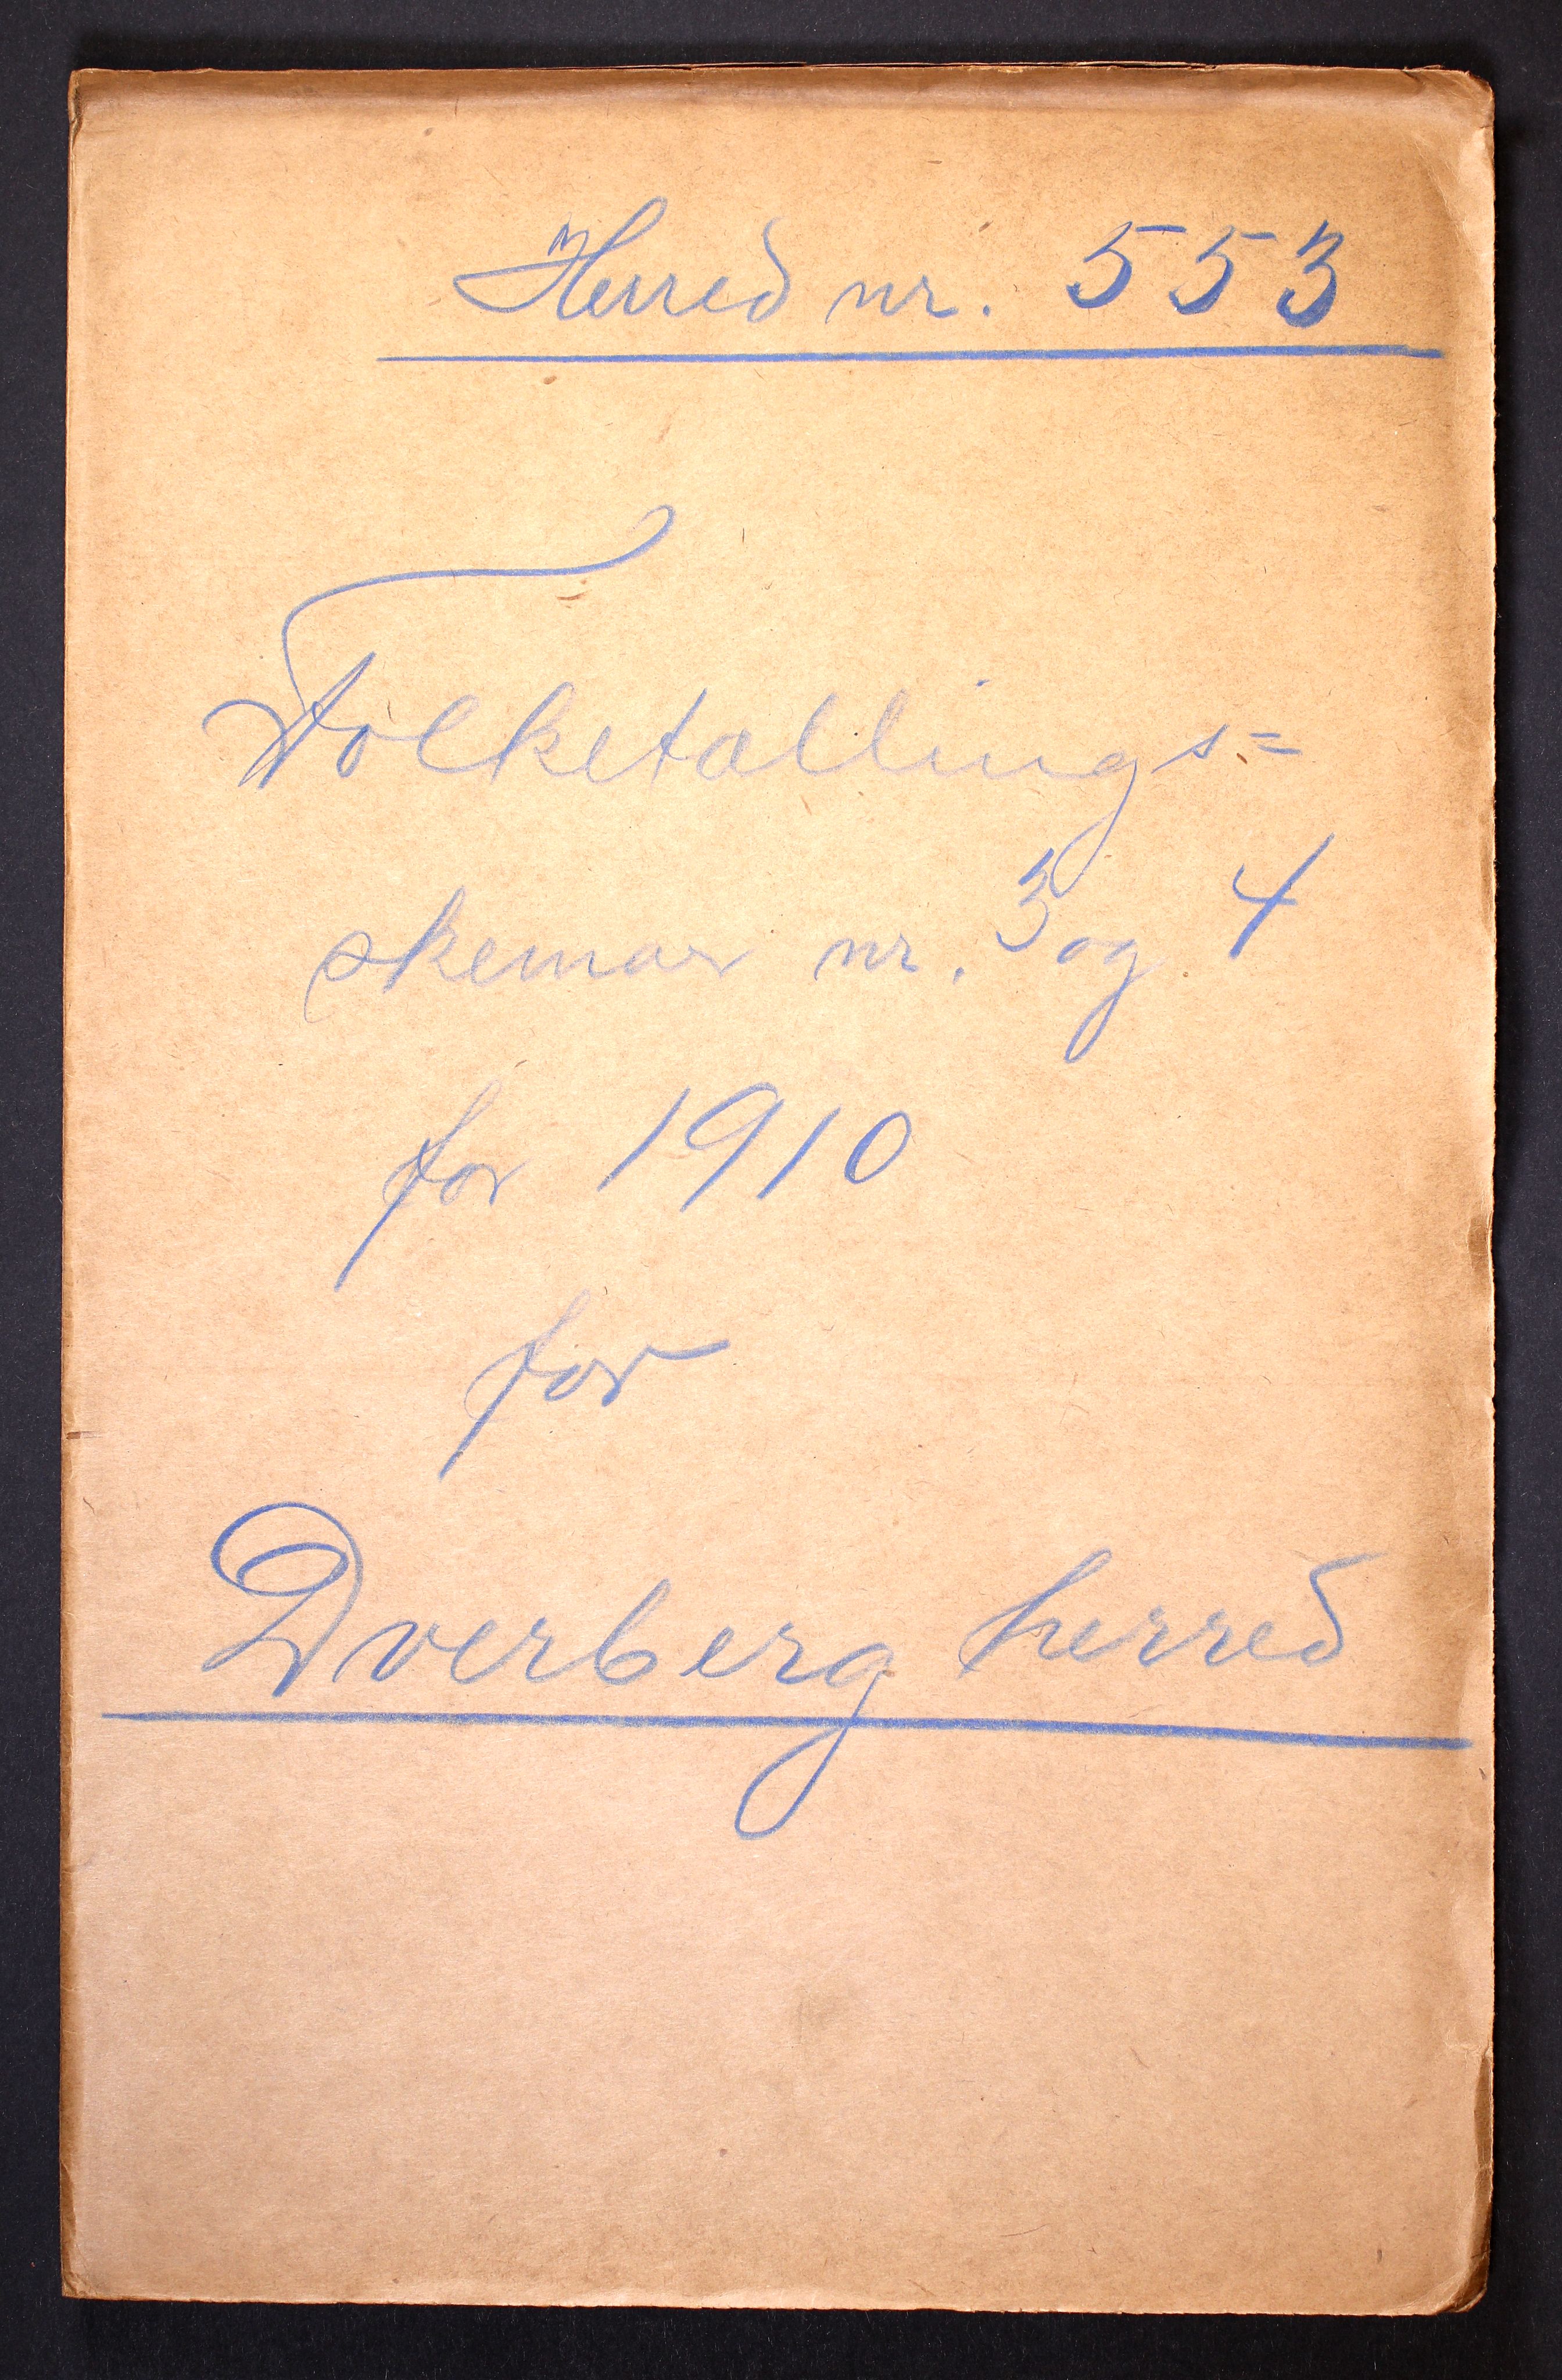 Herred nr. 553
Folketællings=
skemaer nr. 3 og 4
for 1910
for
Dverberg herred